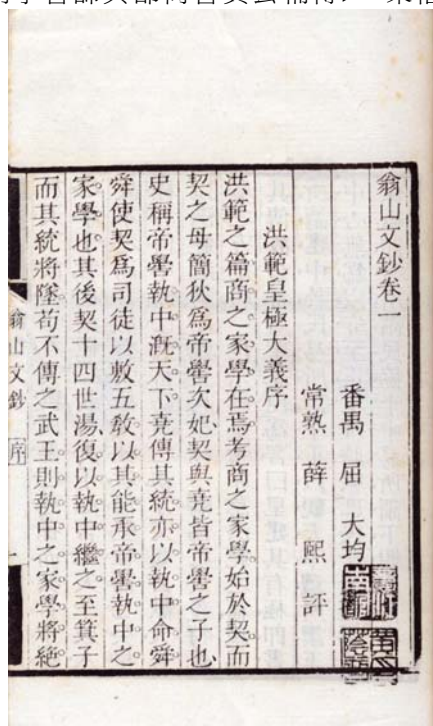 翁山文鈔卷一
番禺 屈 大均
常熟 薛 熙 評
洪範皇極大義序
洪範之篇商之家學在焉考商之家學始於契而
契之母簡狄為帝嚳次妃契與堯皆帝嚳之子也
史稱帝嚳執中漑天下堯傳其統亦以執中命舜
舜使契爲司徒以敷五敎以其能承帝嚳執中之
家學也其後契十四世湯復以執中繼之至箕子
而其統將墜苟不傳之武王則執中之家學將絕
翁山文鈔 序 一